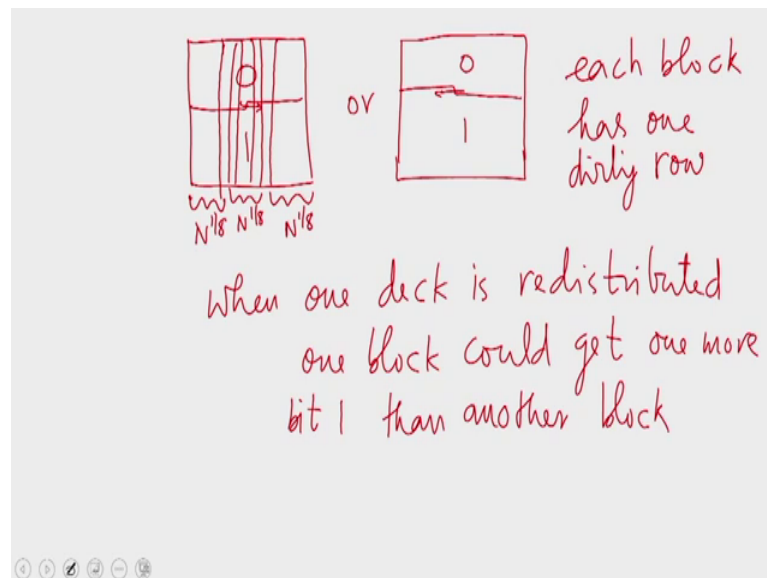 0
1
N^1/8 N^1/8 N^1/8
or
0
1
each block
has one
dirty row
when one deck is redistributed
one block could get one more
bit 1 than another block